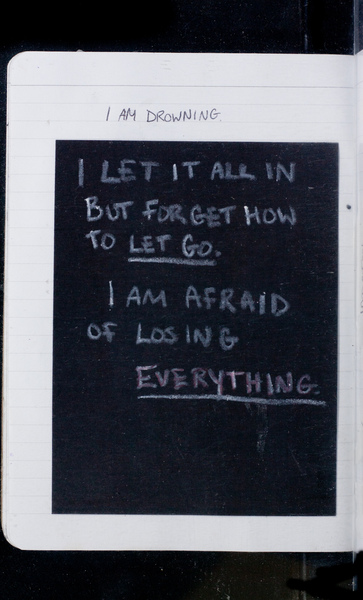 I AM DROWNING.
I LET IT ALL IN
BUT FORGET HOW
TO LET GO.
I AM AFRAID
OF LOSING
EVERYTHING.